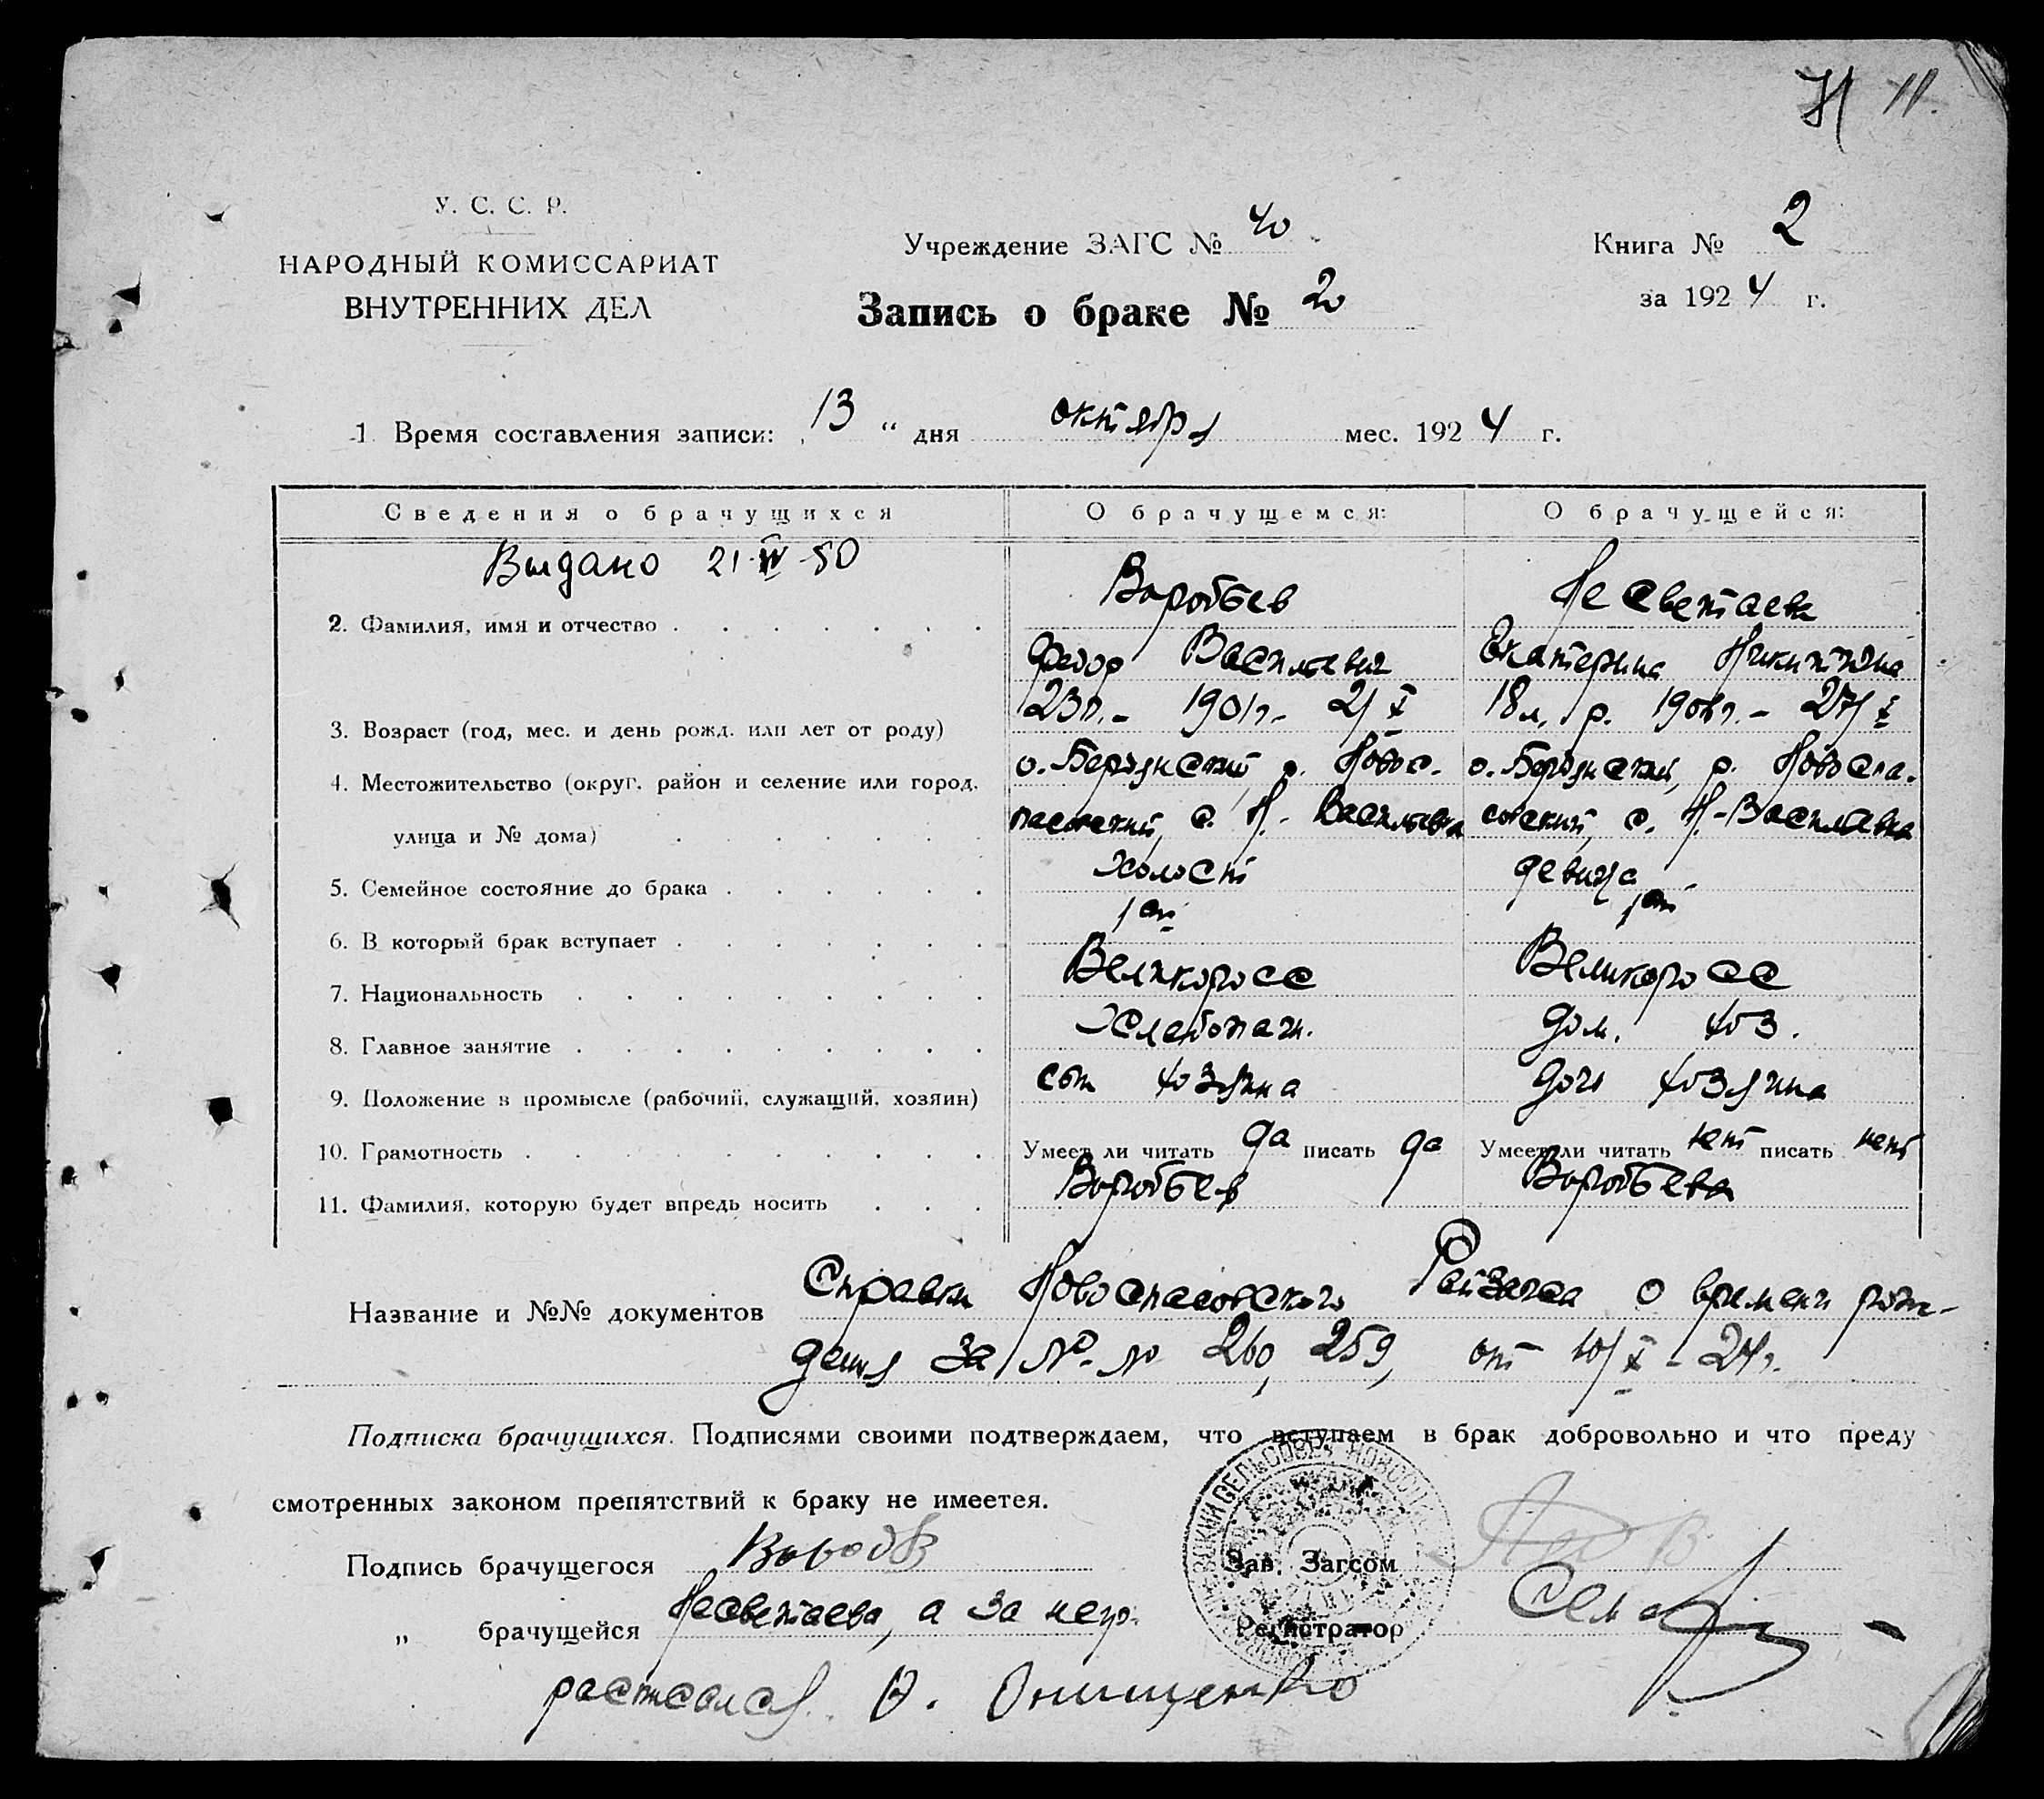 11.
У. С. С. Р.
НАРОДНЫЙ КОМИССАРИАТ
ВНУТРЕННИХ ДЕЛ
Учреждение ЗАГС № 40
Запись о браке № 20
Книга № 2
за 1924 г.
1 Время составления записи: 13 " дня октября мес. 1924 г.
Сведения о брачущихся О брачущемся: О брачущейся:
Выдано 21·IV·50
2. Фамилия, имя и отчество Воробьев Несветаева
Федор Васильевич Екатерина Никитична
3. Возраст (год, мес. и день рожд. или лет от роду) 23 г. - 1901 г. - 2/X 18 л. р. 1906 г. - 27/X
4. Местожительство (округ. район и селение или город, о. Бердянский р. Новос- о. Бердянский, р. Новоспа-
улица и № дома) пасовский, с. Н.-Васильевка совский, с. Н.-Васильевка
5. Семейное состояние до брака холост девица
6. В который брак вступает 1ый 1ый
7. Национальность Великоросс Великоросс
8. Главное занятие Хлебопаш. Дом. хоз.
9. Положение в промысле (рабочий, служащий, хозяин) сын хозяина дочь хозяина
10. Грамотность Умеет ли читать да писать да Умеет ли читать нет писать нет
11. Фамилия, которую будет впредь носить Воробьев Воробьева
Название и №№ документов Справки Новоспасовского Райзагса о времени рож-
дения за №-№ 260, 259, от 10/X-24 г.
Подписка брачущихся. Подписями своими подтверждаем, что вступаем в брак добровольно и что преду
смотренных законом препятствий к браку не имеется.
Подпись брачущегося Зав. Загсом
„ брачущейся Несветаева, а за негр. Регистратор
расписался О. Онищенко